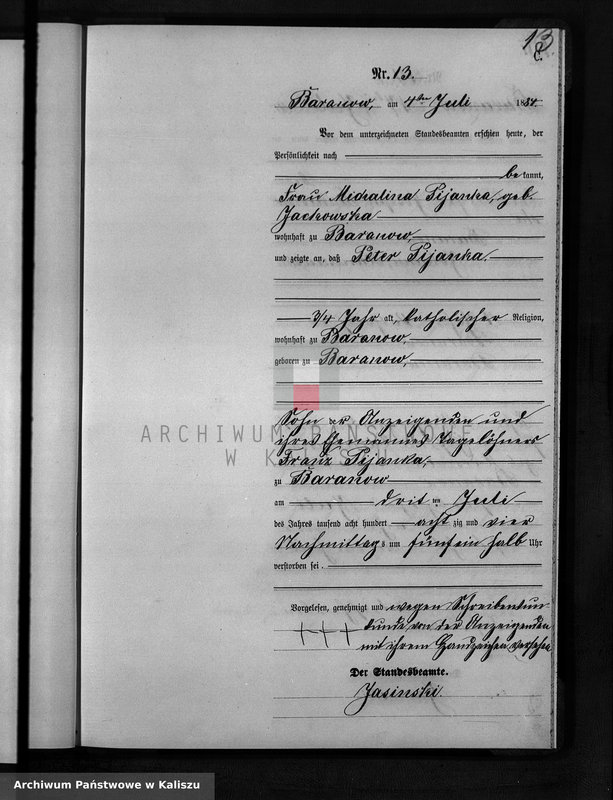 13
C.
Nr. 13.
Baranow, am 4ten Juli 1884.
Vor dem unterzeichneten Standesbeamten erschien heute, der
Persönlichkeit nach
be kannt,
Frau Michalina Pijanka, geb.
Jackowska
wohnhaft zu Baranow
und zeigte an, daß Peter Pijanka.
3/4 Jahr alt, katholischer Religion,
wohnhaft zu Baranow,
geboren zu Baranow,
Sohn der Anzeigenden und
ihres Ehemannes Tagelöhners
Franz Pijanka,
zu Baranow
am drit ten Juli
des Jahres tausend acht hundert acht zig und vier
Nachmittag s um fünf ein halb Uhr
verstorben sei.
Vorgelesen, genehmigt und wegen Schreibenun
kunde von der Anzeigenden
+++ mit ihrem Handzeichen versehen
Der Standesbeamte.
Jasinski.
ARCHIWUM PAŃSTWOWE
W KALISZU
Archiwum Państwowe w Kaliszu